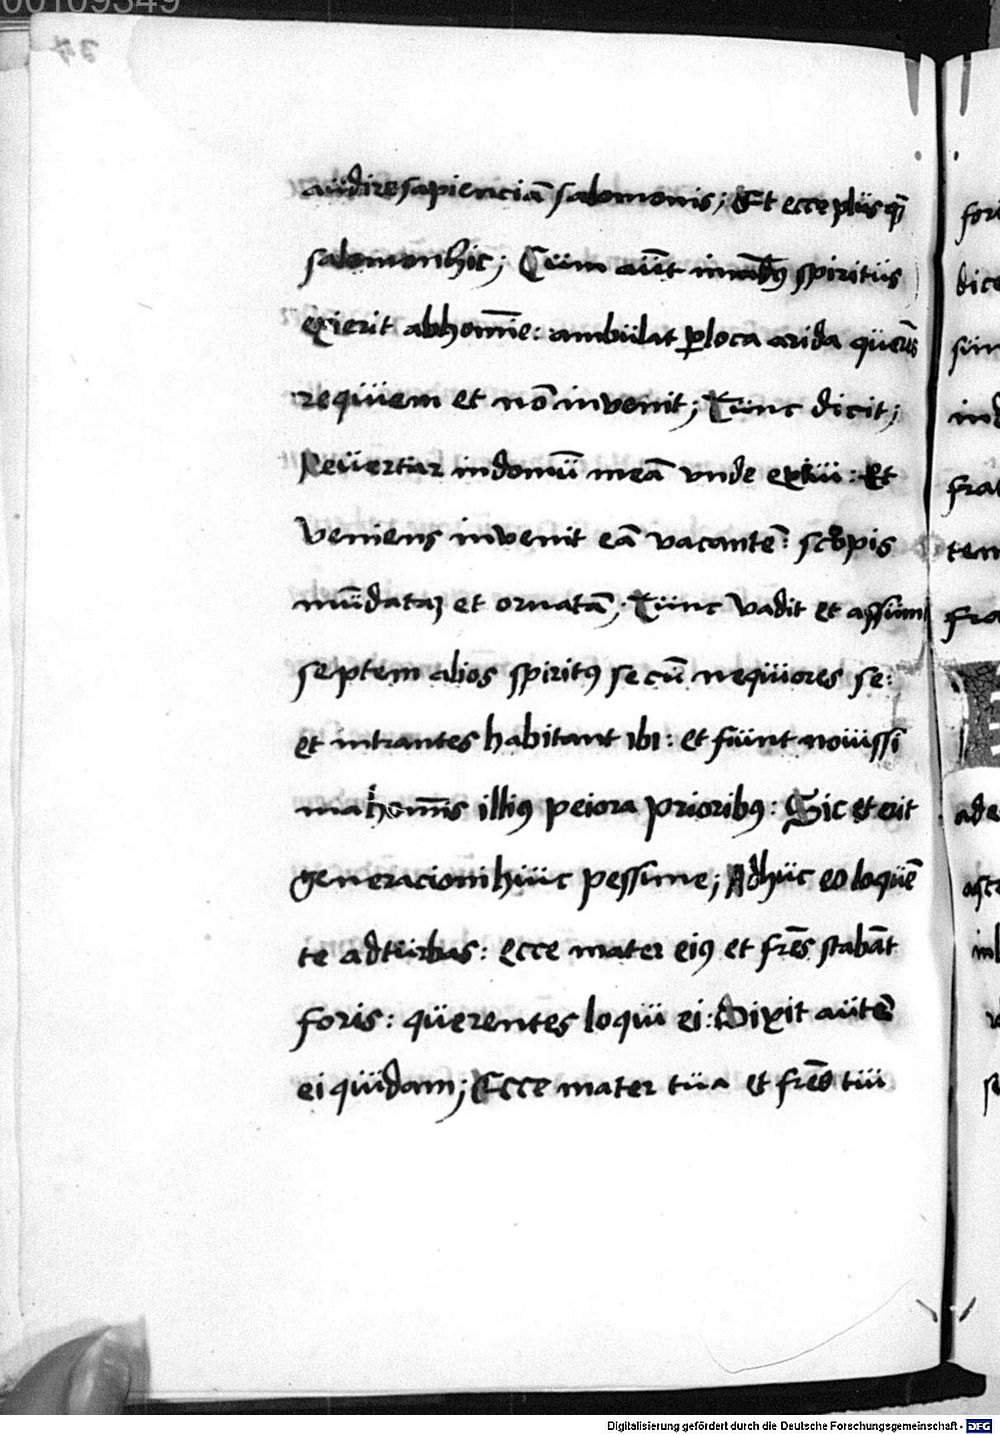 00109349
34
audire sapienciā salomonis; Et ecce plus qᷓ
salomon hic; Cum aūt inmūdꝰ spiritus
exierit ab homīe: ambulat ꝑ loca arida querēs
requiem et nō invenit; Tunc dicit;
Reuertar in domū meā vnde exiui: Et
veniens invenit eā vacantē: scopis
mūdataʒ et ornatā; Tunc vadit et assum
septem alios spiritꝰ secū nequiores se:
et intrantes habitant ibi: et fiunt nouissi
ma homīs illiꝰ peiora prioribꝰ: Sic et erit
generacioni huic pessime; Adhuc eo loquē
te ad turbas: ecce mater eiꝰ et frēs stabāt
foris: querentes loqui ei: Dixit autē
ei quidam; Ecce mater tua et frēs tui
Digitalisierung gefördert durch die Deutsche Forschungsgemeinschaft - DFG